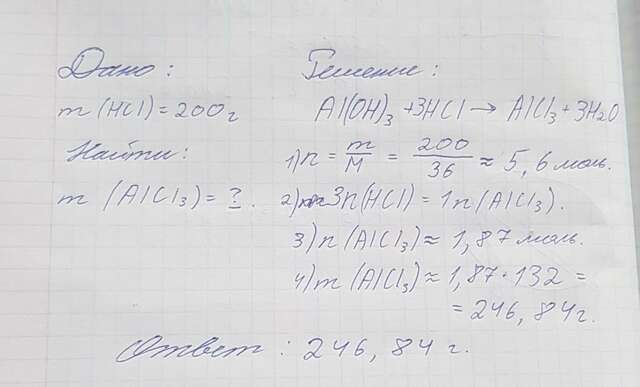 Дано:
m (HCl) = 200г
Найти:
m (AlCl₃) = ?.
Решение:
Al(OH)₃ + 3HCl → AlCl₃ + 3H₂O
1) n = m/M = 200/36 ≈ 5,6 моль.
2) 3n(HCl) = 1n(AlCl₃).
3) n(AlCl₃) ≈ 1,87 моль.
4) m(AlCl₃) ≈ 1,87 · 132 =
= 246,84г.
Ответ: 246,84 г.